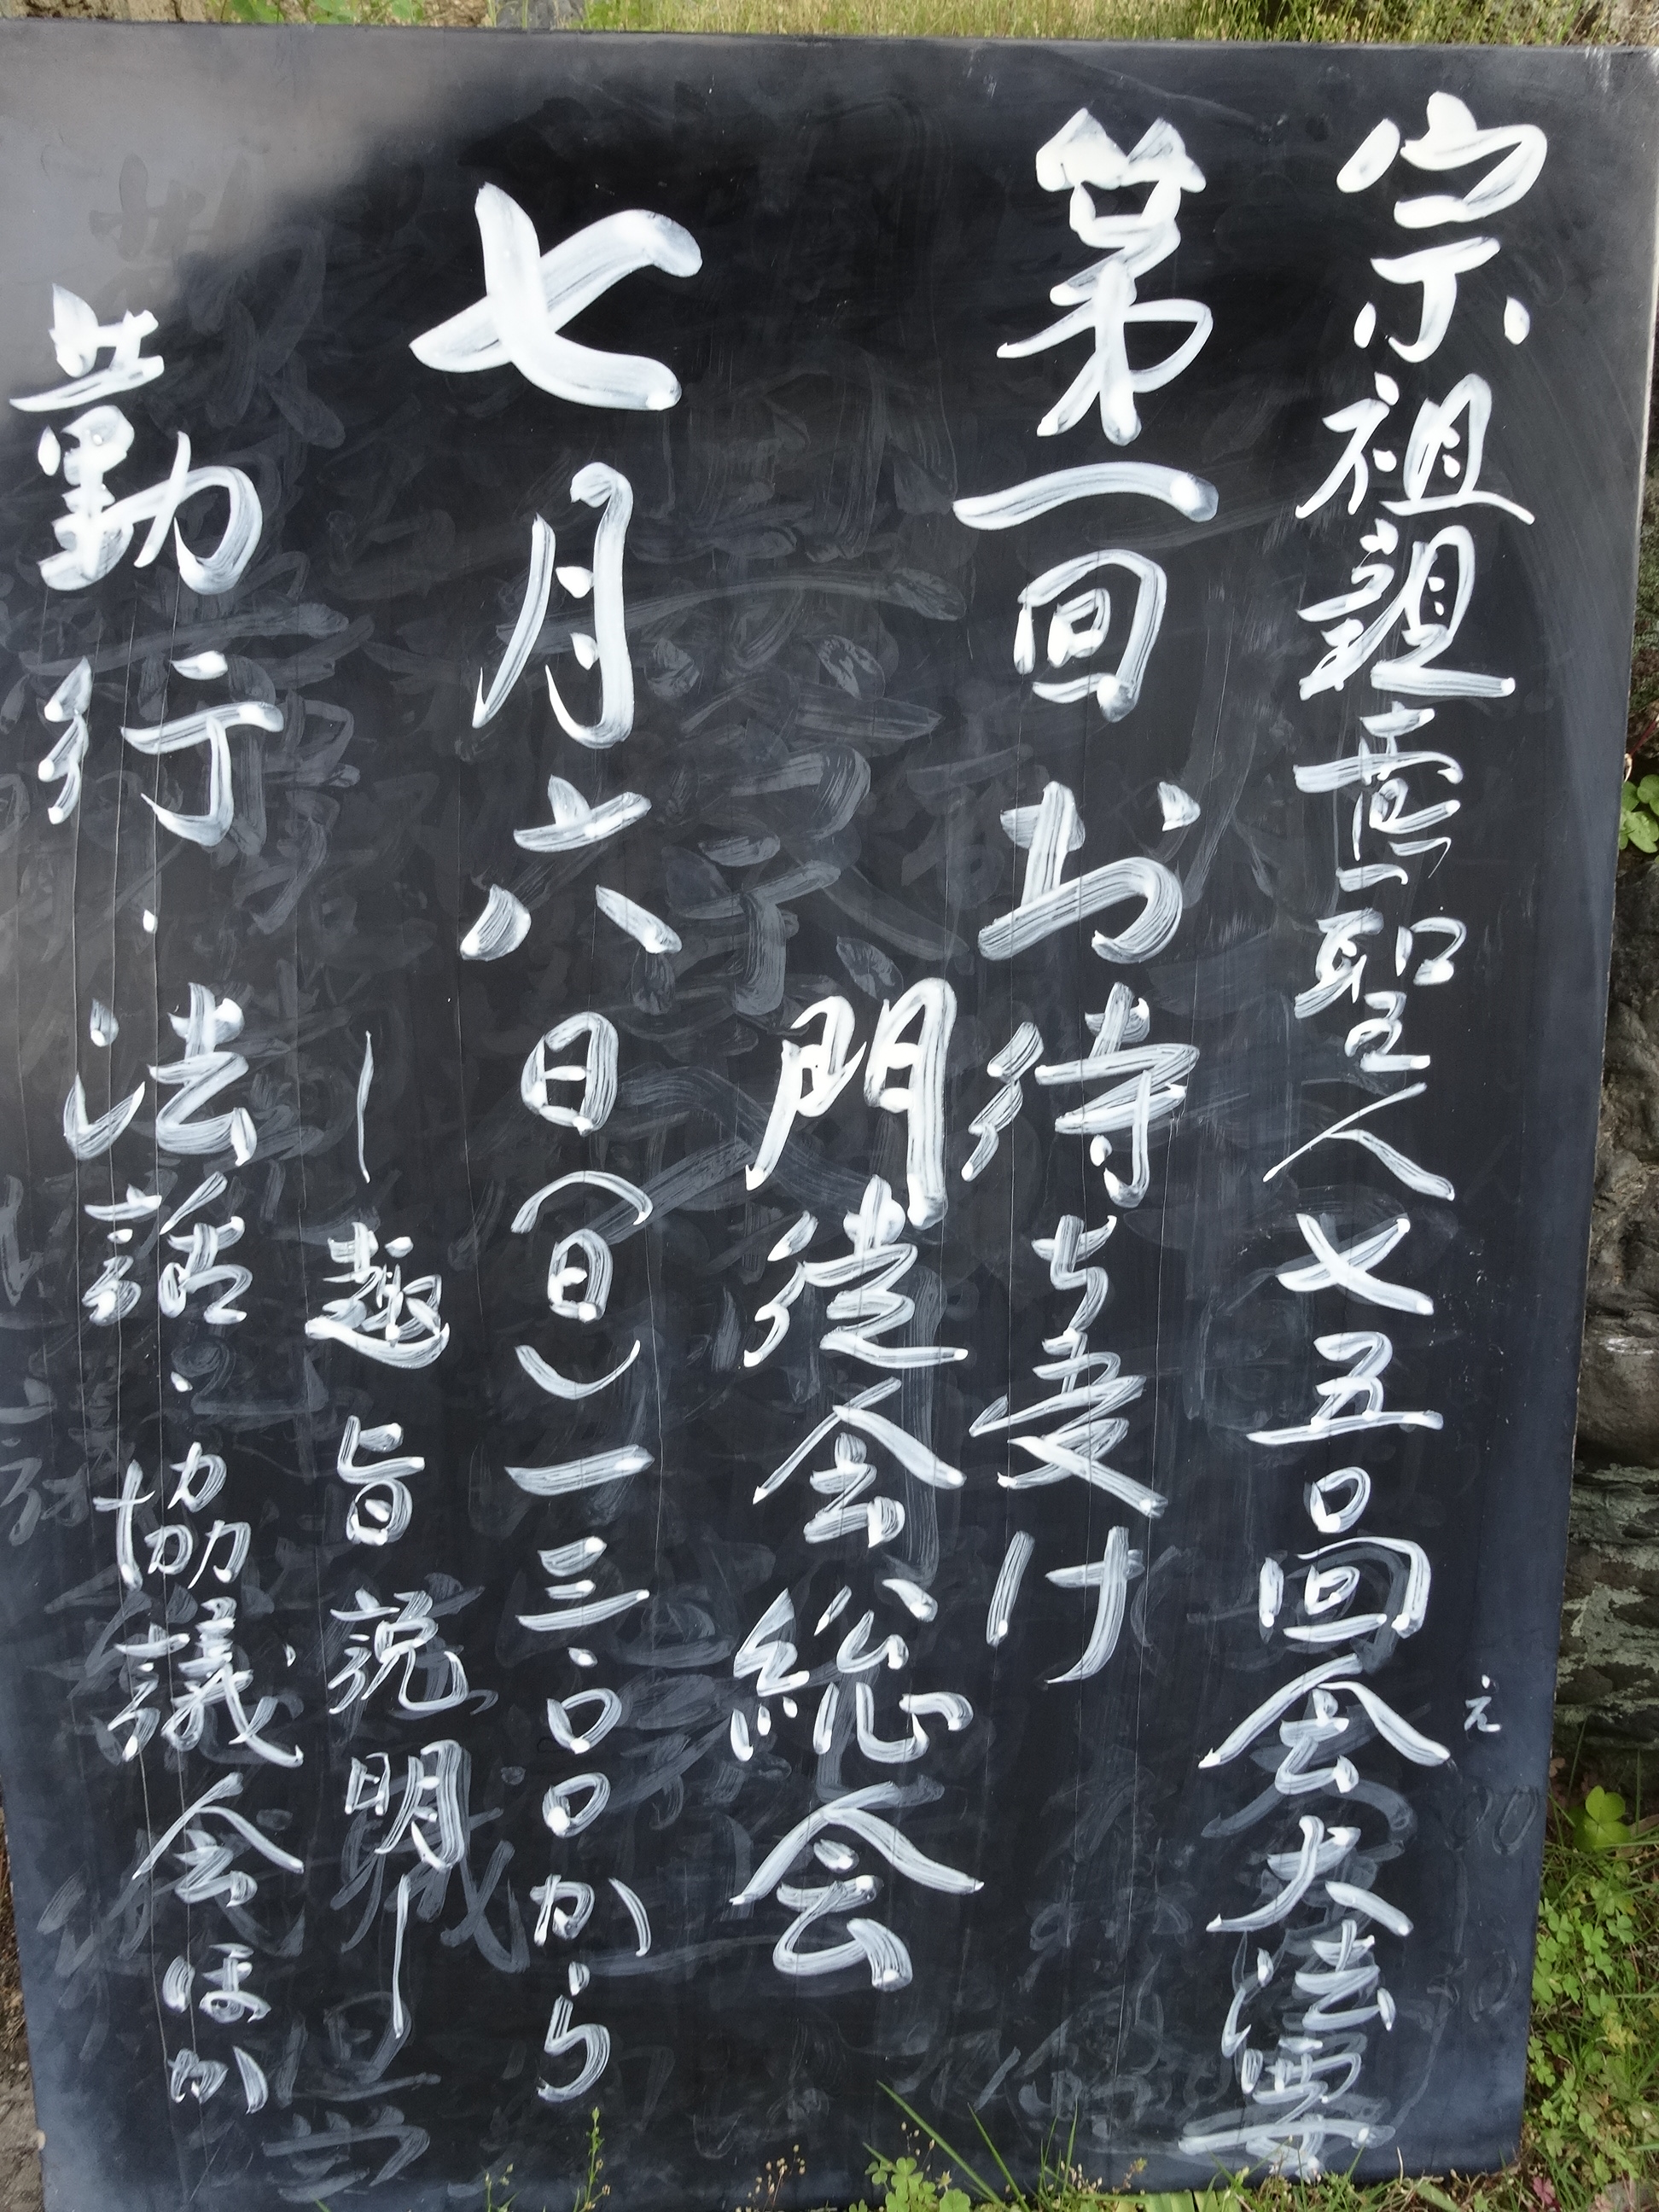 宗祖親鸞聖人七五〇回会大法要
え
第一回お待ち受け
門徒会総会
七月六日(日)一三・〇〇から
―趣旨説明―
勤行・法話・協議会ほか